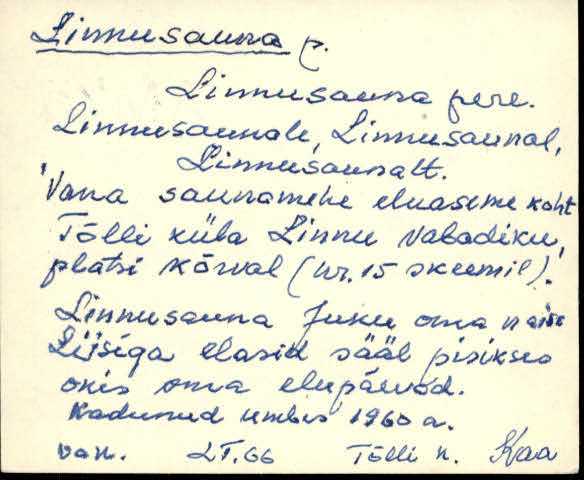 Linnusauna p.
Linnusauna pere.
Linnusaunale, Linnusaunal,
Linnusaunalt.
Vana saunamehe eluaseme koht
Tõlli küla Linnu vabadiku
platsi kõrval (nr. 15 skeemil).
Linnusauna Juku oma naise
Liisiga elasid sääl pisikses
onis oma elupäevad.
Kadunud umbes 1960 a.
LT.66 Tõlli k. Kaa